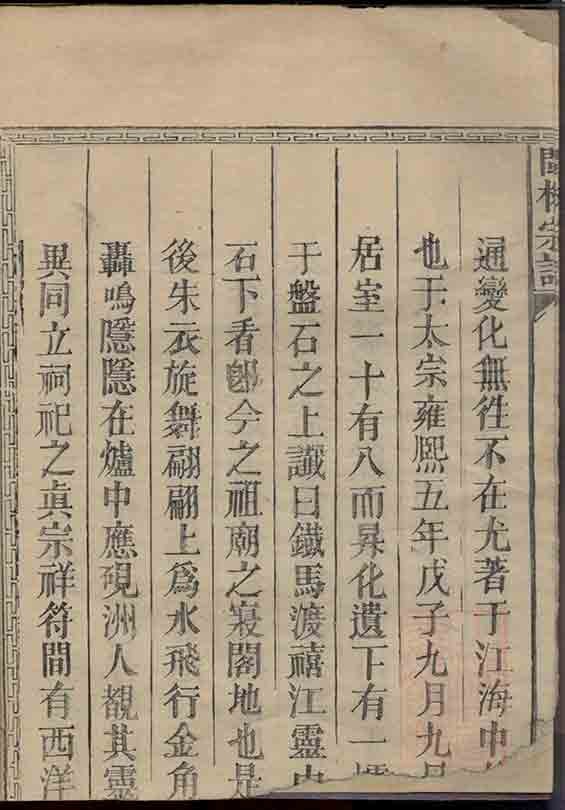 宗譜
通變化無徃不在尤著于江海中
也于太宗雍熙五年戊子九月九日
居室一十有八而昇化遺下有一
于盤石之上讖曰鐵馬渡禧江靈
石下看卽今之祖廟之寢閣地也是
後朱衣旋舞翩翩上為水飛行金角
轟鳴隱隱在爐中應硯洲人覩其靈
異同立祠祀之眞宗祥符間有西洋